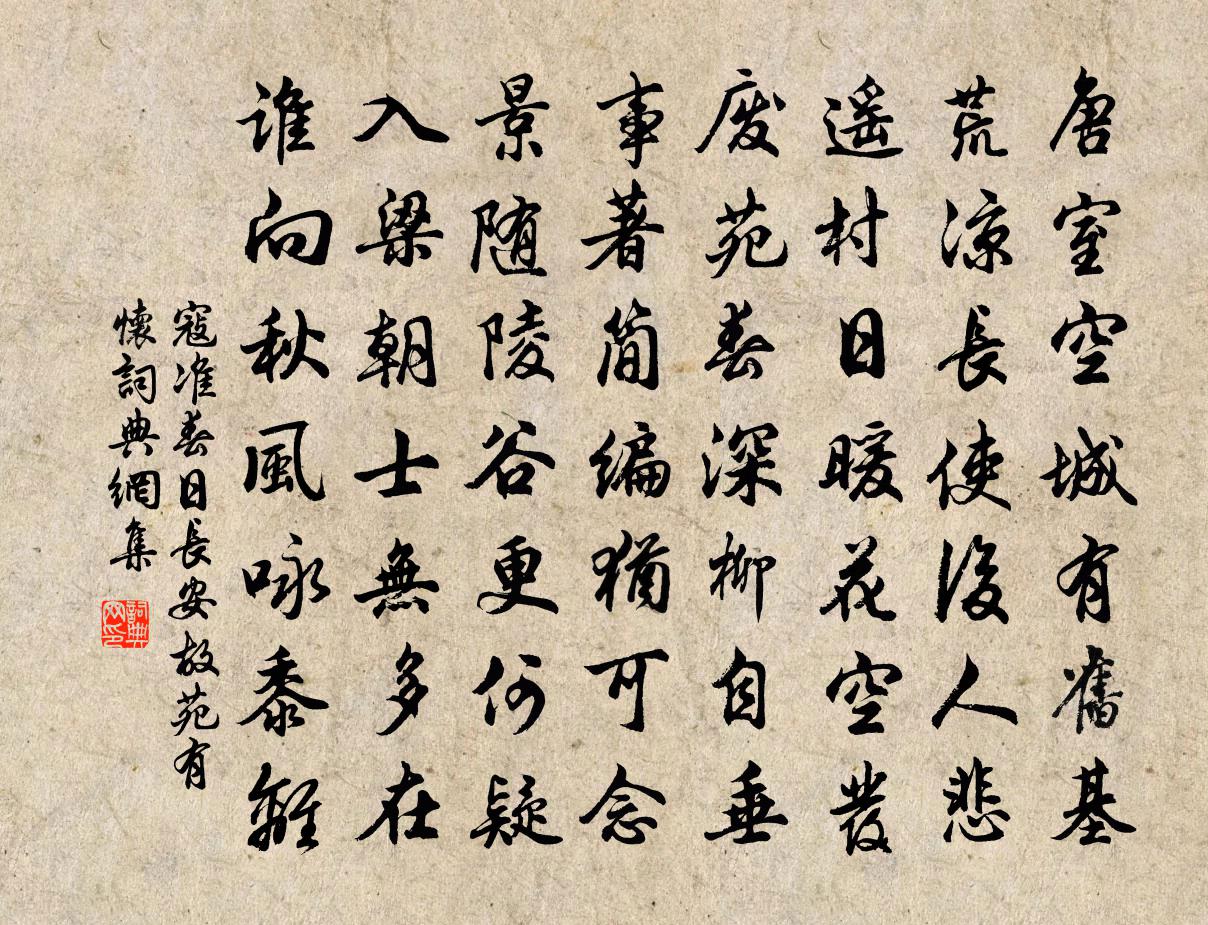 唐室空城有舊基
荒凉長使後人悲
遥村日暖花空發
废苑春深柳自垂
事著简编猶可念
景随陵谷更何疑
入梁朝士無多在
谁向秋風咏黍離
寇准春日長安故苑有
懷詞典網集
詞典
网印